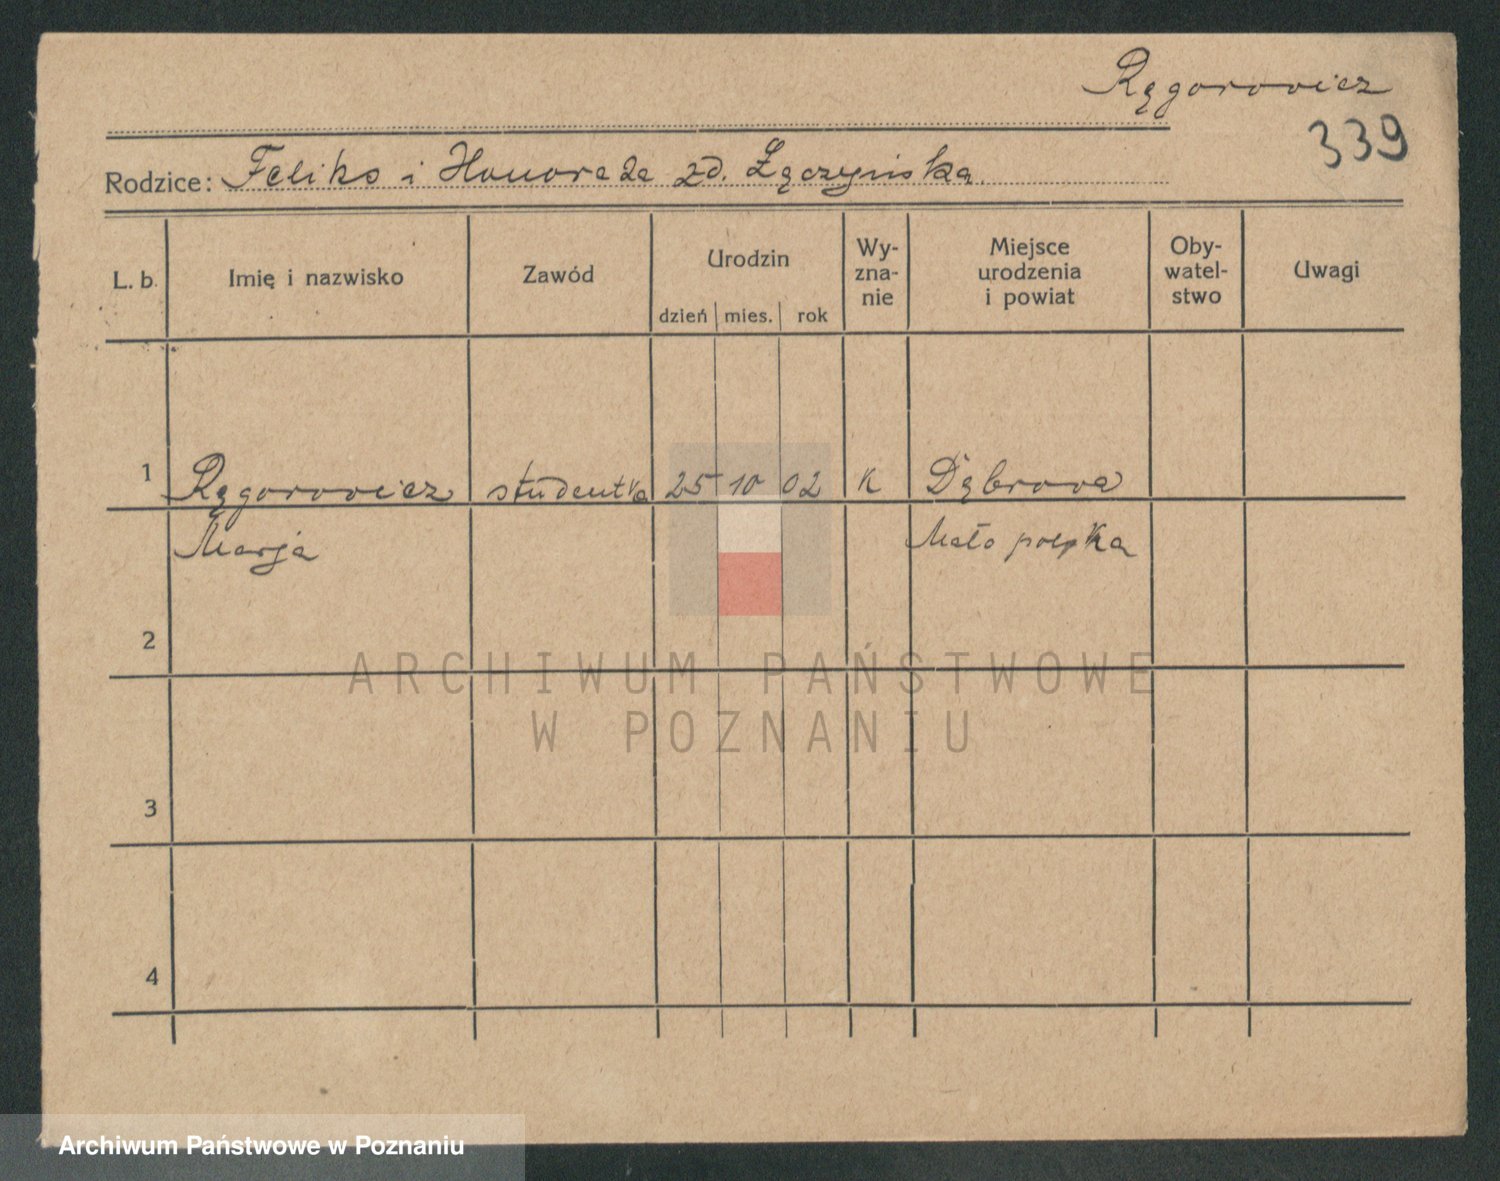 Ręgorowicz
339
Rodzice: Feliks i Honorada zd. Łączyńska.
L. b. Imię i nazwisko Zawód Urodzin Wy-zna-nie Miejsce urodzenia i powiat Oby-watel-stwo Uwagi
dzień mies. rok
1 Ręgorowicz studentka 25 10 02 K Dąbrowa
Marja Małopolska
2
ARCHIWUM PAŃSTWOWE
W POZNANIU
3
4
Archiwum Państwowe w Poznaniu